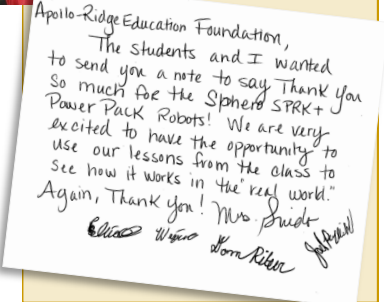 Apollo-Ridge Education Foundation,
The students and I wanted
to send you a note to say Thank you
so much for the Sphero SPRK+
Power Pack Robots! We are very
excited to have the opportunity to
use our lessons from the class to
see how it works in the "real world."
Again, Thank you! Mrs.
Tom